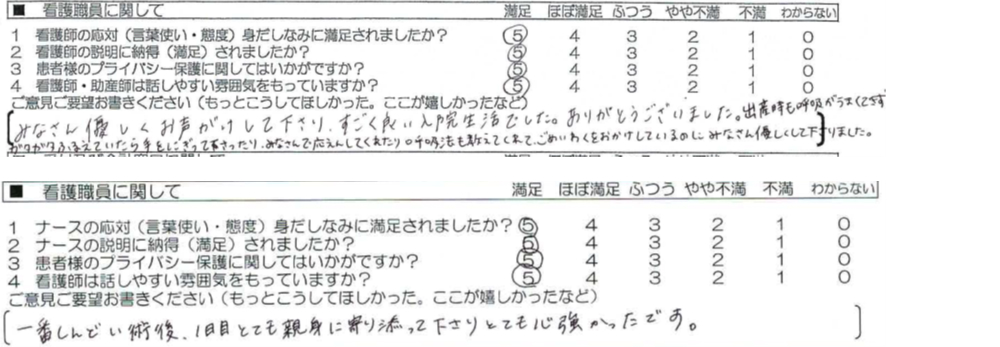 ■ 看護職員に関して 満足 ほぼ満足 ふつう やや不満 不満 わからない
1 看護師の応対（言葉使い・態度）身だしなみに満足されましたか？ 5 4 3 2 1 0
2 看護師の説明に納得（満足）されましたか？ 5 4 3 2 1 0
3 患者様のプライバシー保護に関してはいかがですか？ 5 4 3 2 1 0
4 看護師・助産師は話しやすい雰囲気をもっていますか？ 5 4 3 2 1 0
ご意見ご要望お書きください（もっとこうしてほしかった。ここが嬉しかったなど）
みなさん優しくお声がけして下さり、すごく良い入院生活でした。ありがとうございました。出産時も呼吸がうまくできず
ガタガタふるえていたら手をにぎって下さったり、みなさんで応えんしてくれたり呼吸法も教えてくれて、ごめいわくをおかけしているのにみなさん優しくして下さりました。
満足 ほぼ満足 ふつう やや不満 不満 わからない
■ 看護職員に関して 満足 ほぼ満足 ふつう やや不満 不満 わからない
1 ナースの応対（言葉使い・態度）身だしなみに満足されましたか？ 5 4 3 2 1 0
2 ナースの説明に納得（満足）されましたか？ 5 4 3 2 1 0
3 患者様のプライバシー保護に関してはいかがですか？ 5 4 3 2 1 0
4 看護師は話しやすい雰囲気をもっていますか？ 5 4 3 2 1 0
ご意見ご要望お書きください（もっとこうしてほしかった。ここが嬉しかったなど）
一番しんどい術後、1日目とても親身に寄り添って下さりとても心強かったです。